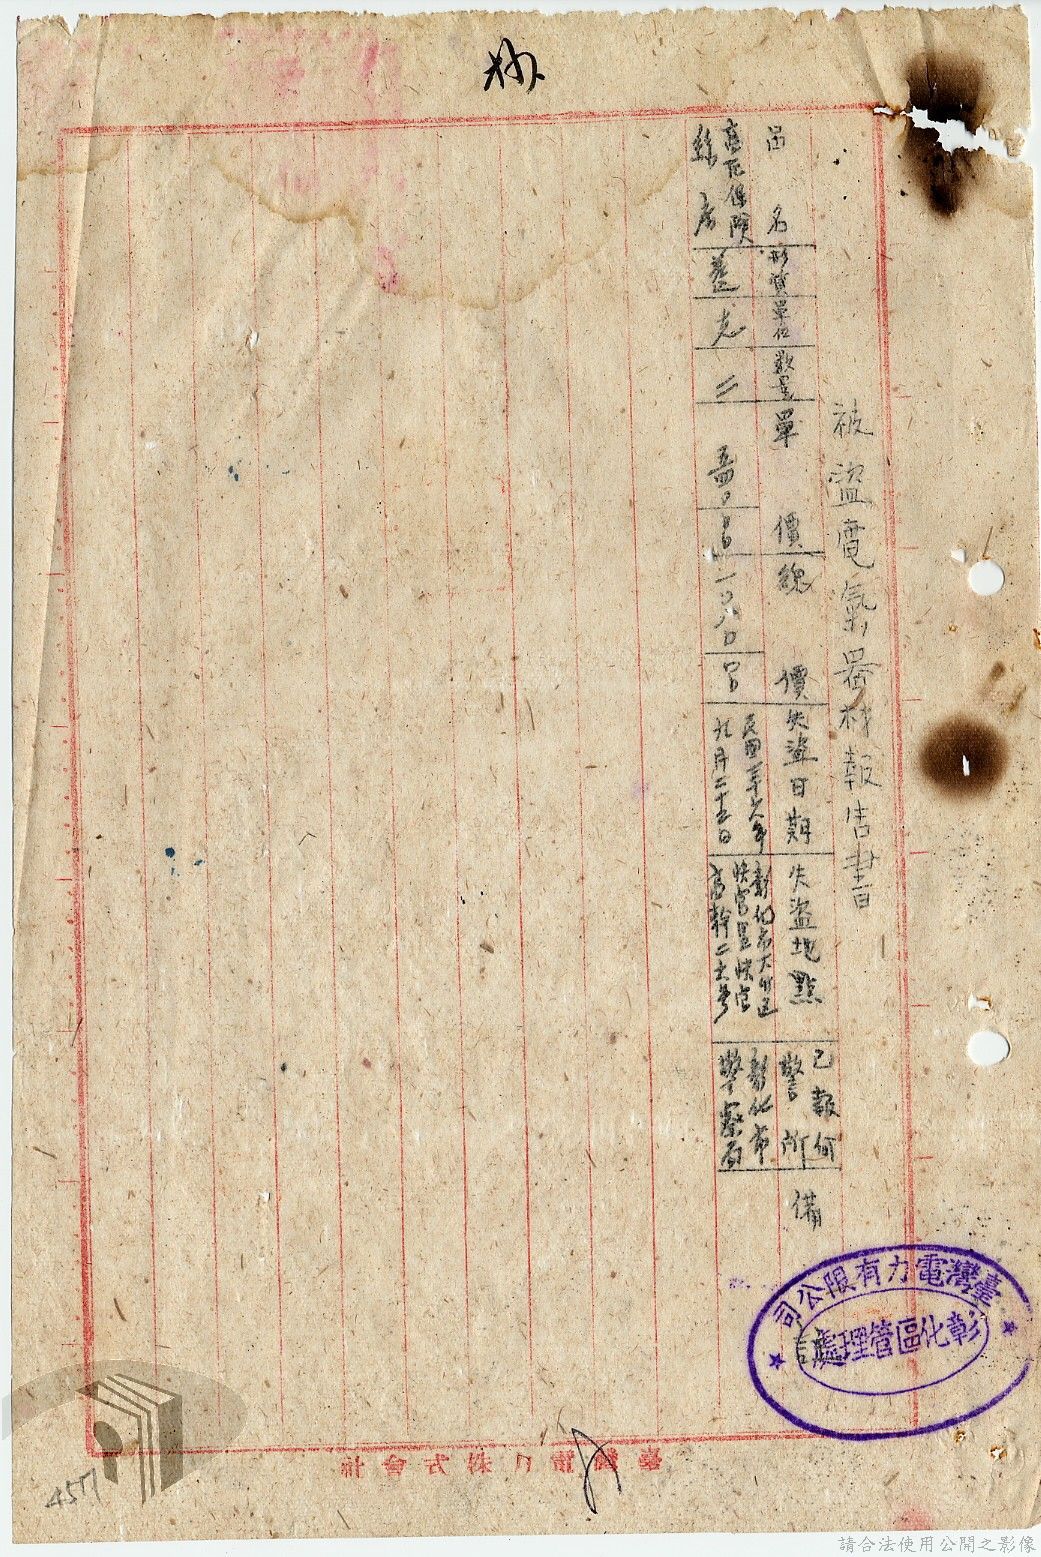 抄
被盜電氣器材報告書
品名
形質
單位
數量
單價
總價
失盜日期
失盜地點
已報何
警所
備註
高圧保險
絲
二
民國三十六年
九月二十五日
彰化市大竹區
快官里快官
高幹二七號
彰化市
警察局
臺灣電力有限公司
彰化區管理處
臺灣電力株式會社
457
請合法使用公開之影像